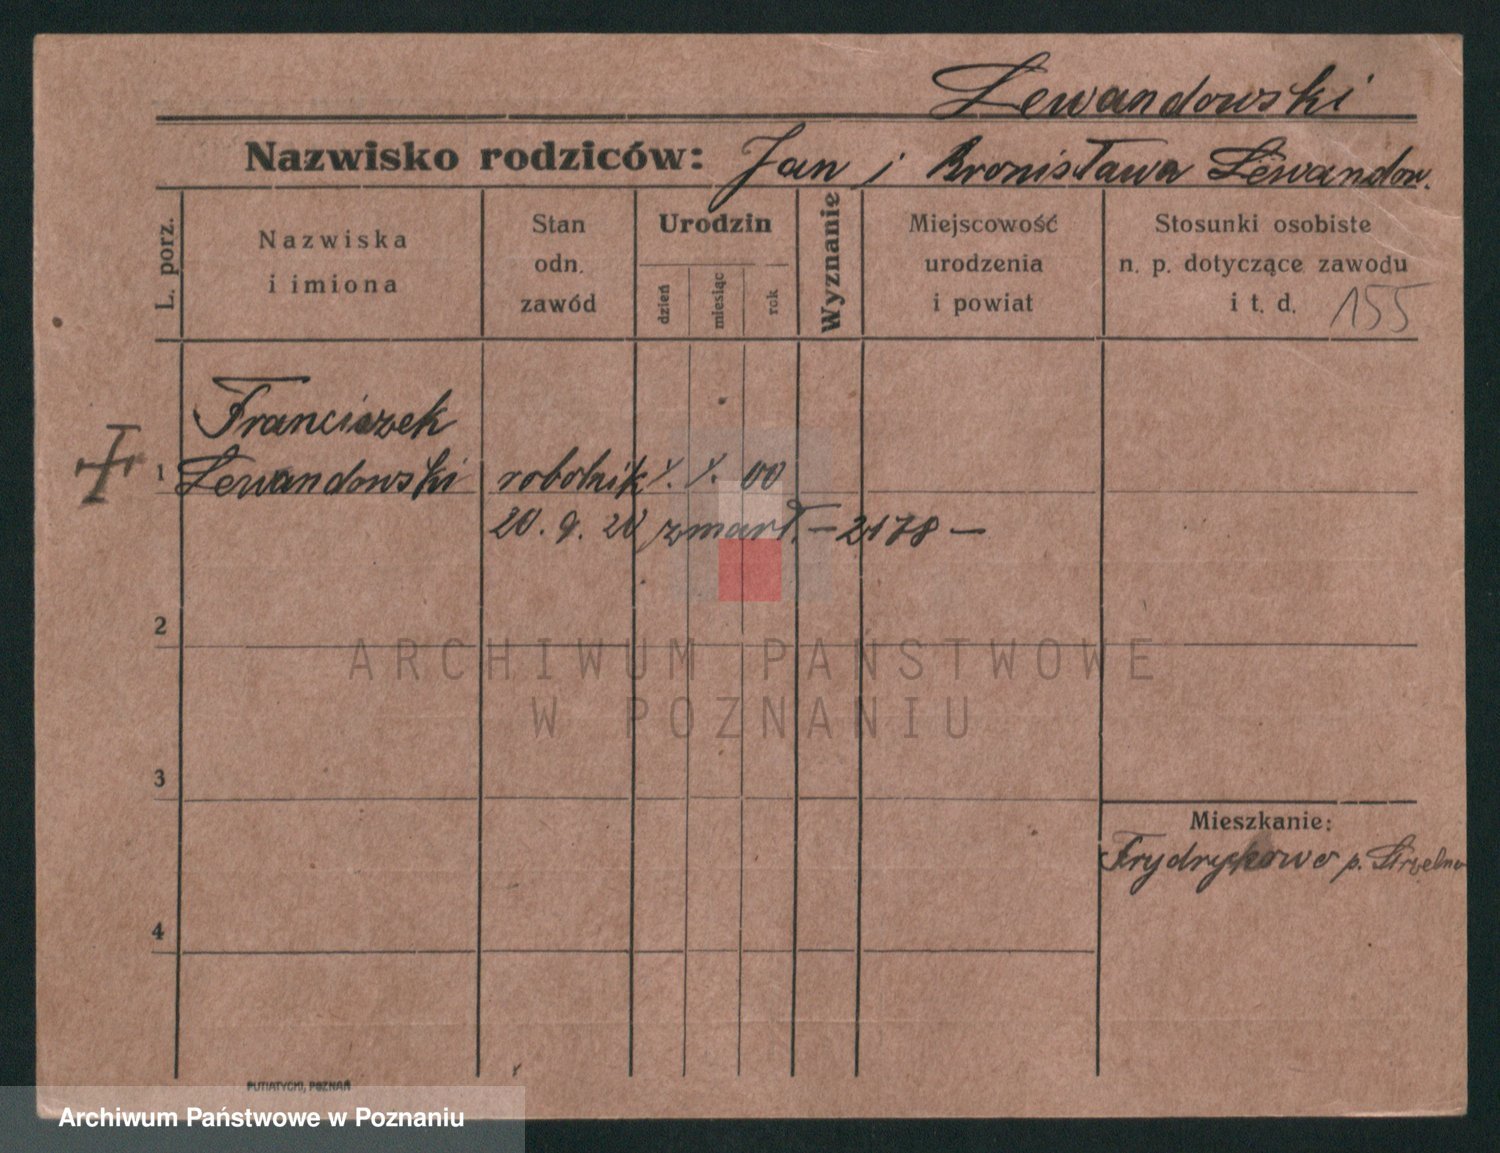 Lewandowski
Nazwisko rodziców: Jan i Bronisława Lewandow.
L. porz.
Nazwiska
i imiona
Stan
odn.
zawód
Urodzin
dzień
miesiąc
rok
Wyznanie
Miejscowość
urodzenia
i powiat
Stosunki osobiste
n. p. dotyczące zawodu
i t. d. 155
Franciszek
1 Lewandowski robotnik 00
20. 9. 20 zmarł. – 2178 –
2
ARCHIWUM PAŃSTWOWE
W POZNANIU
3
Mieszkanie:
Frydrykowo p. Strzelno
4
PUTIATYCKI, POZNAŃ
Archiwum Państwowe w Poznaniu